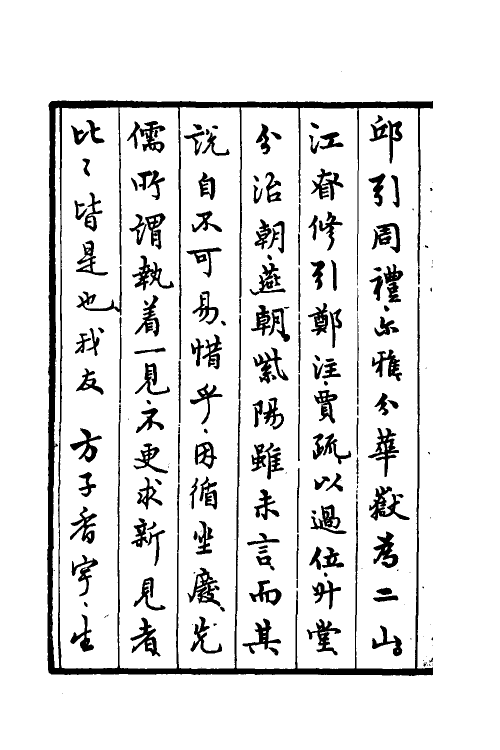 邱引周禮尒雅分華嶽為二山
江督修引鄭注賈疏以過位升堂
分治朝燕朝紫陽雖未言而其
說自不可易惜乎因循坐廢先
儒所謂執着一見不更求新見者
比〻皆是也我友 方子香宇生